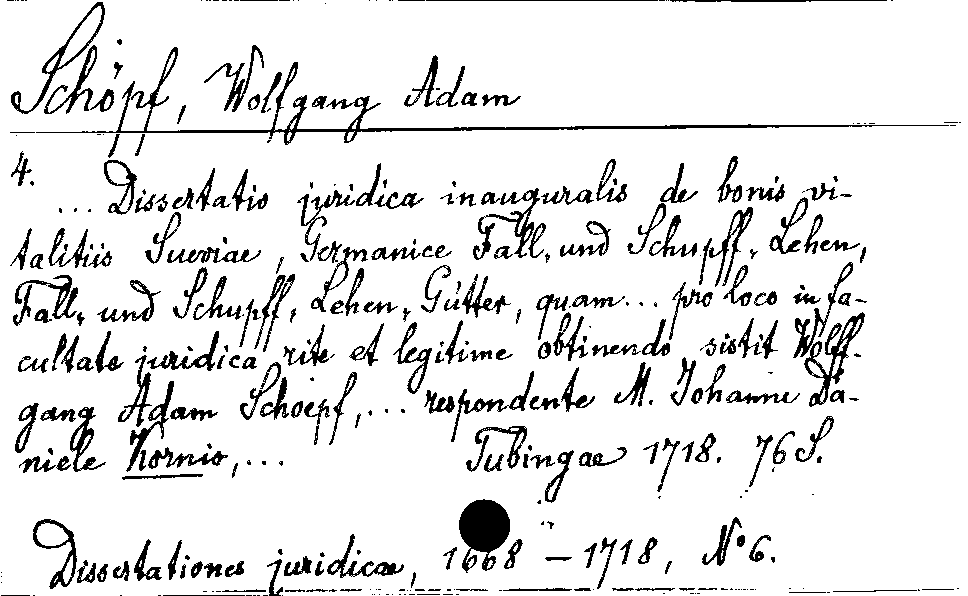 Schöpf, Wolfgang Adam
4.
... Dissertatio juridica inauguralis de bonis vi-
talitiis Sueviae, Germanice Fall, und Schupff, Lehen,
Fall, und Schupff, Lehen, Gütter, quam... pro loco in fa-
cultate juridica rite et legitime obtinendo sistit Wolff-
gang Adam Schoepf,... respondente M. Johanne Da-
niele Kornio,... Tubingae 1718. 76 S.
Dissertationes juridicae, 1668 - 1718, N° 6.